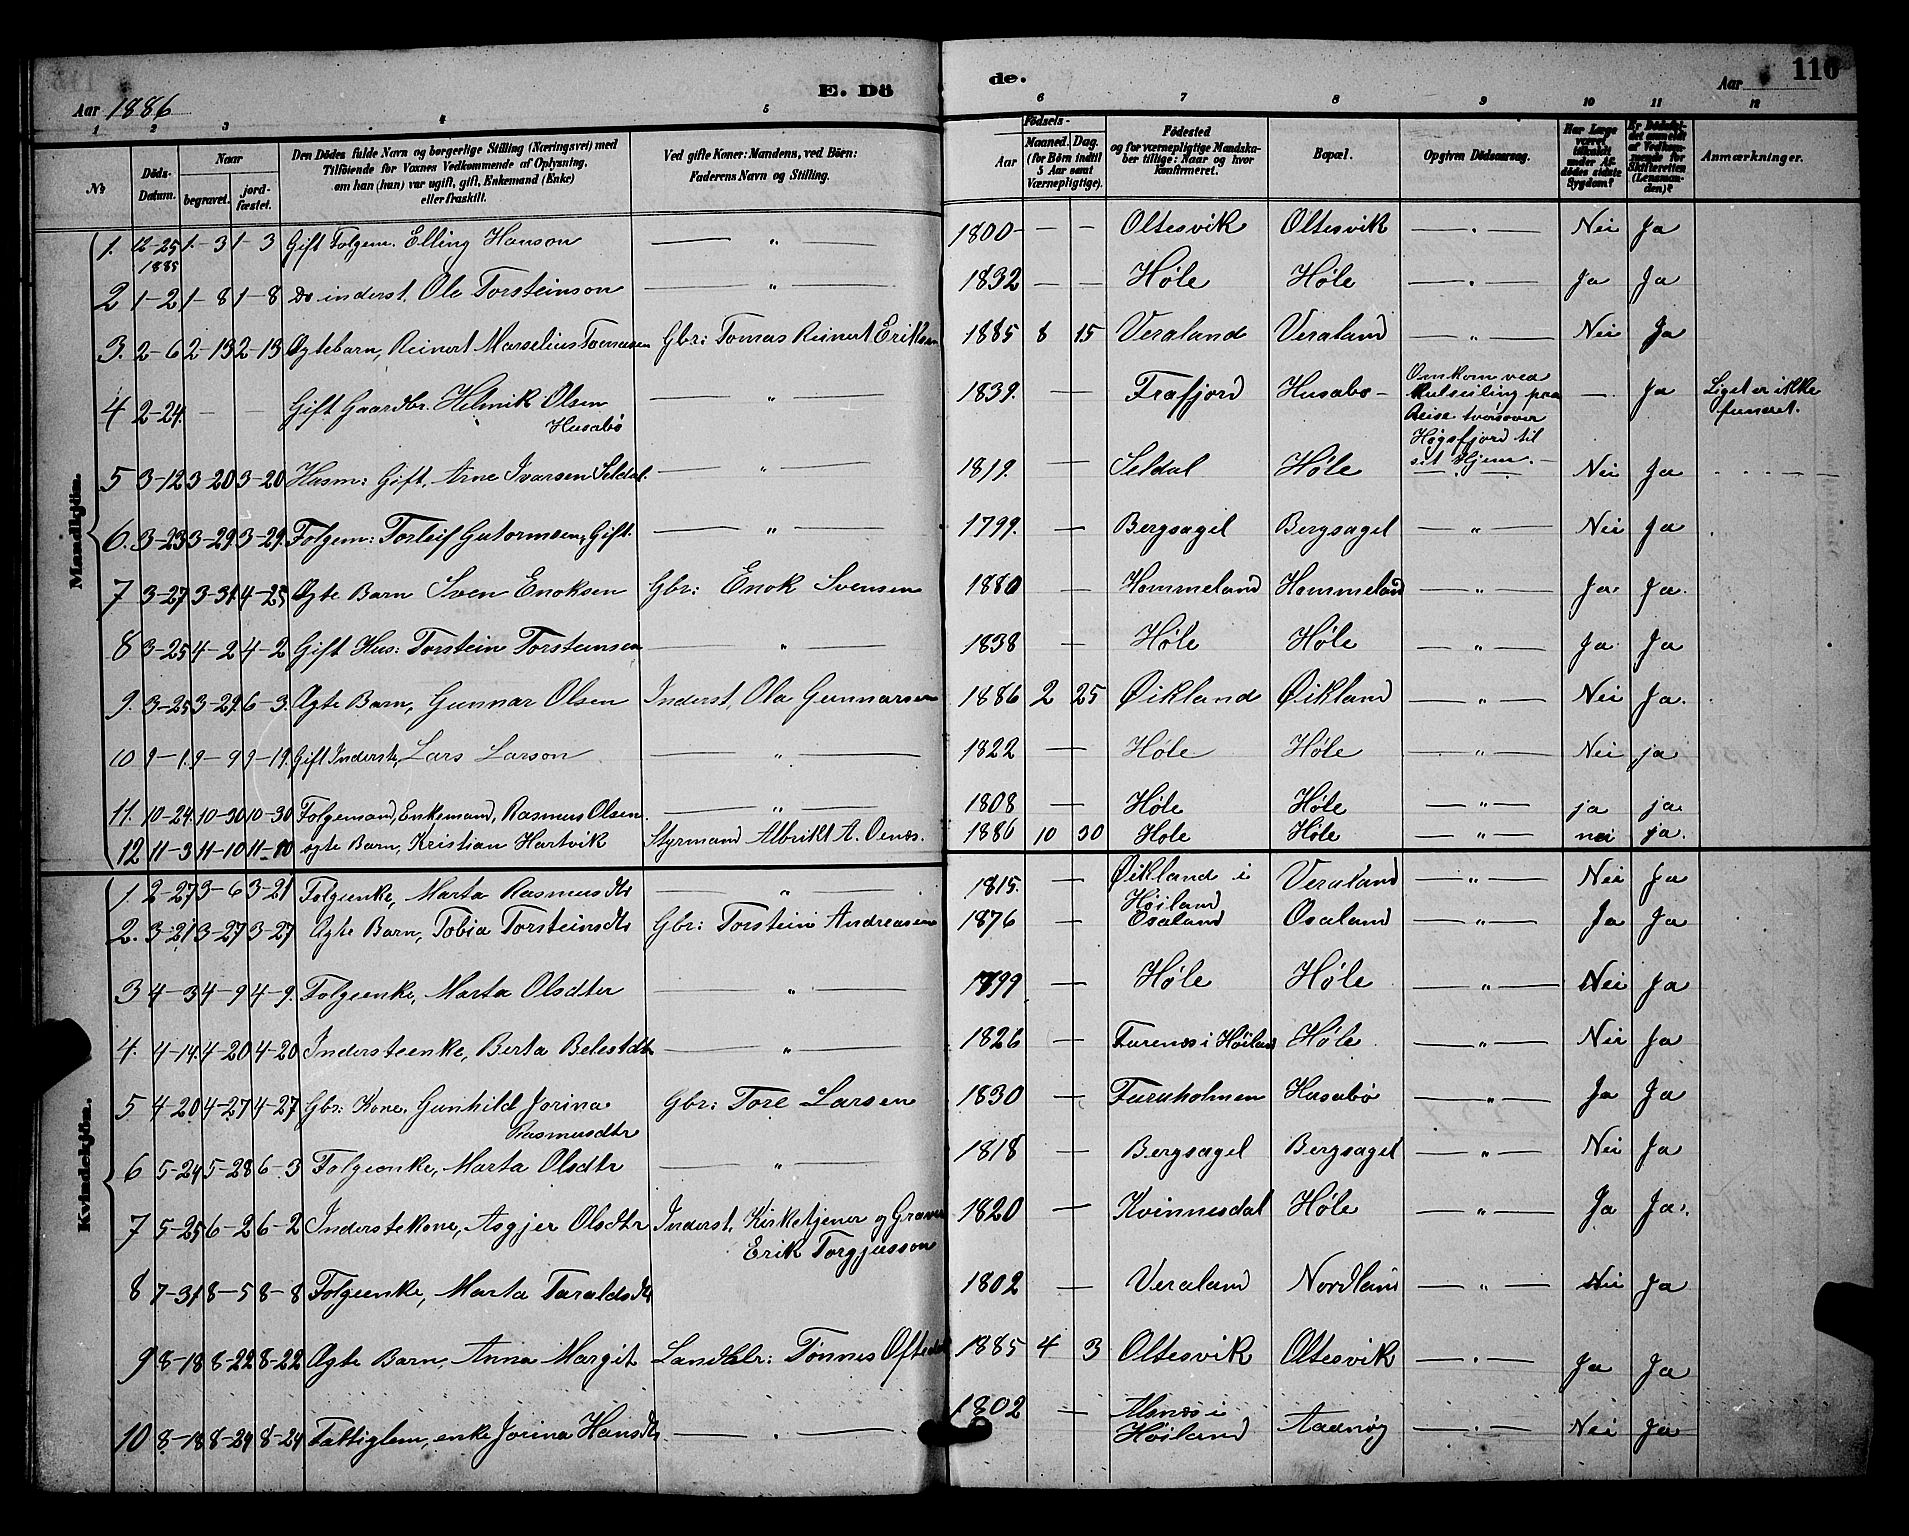 E. Dö de. 116
Aar 1886 Aar
1 2 3 4 5 6 7 8 9 10 11 12
No Döds-Datum. Naar begravet. jordfæstet. Den Dödes fulde Navn og borgerlige Stilling (Næringsvei) med Tilföiende for Voxnes Vedkommende af Oplysning, om han (hun) var ugift, gift, Enkemand (Enke) eller fraskilt. Ved gifte Koner: Mandens, ved Börn: Faderens Navn og Stilling. Födsels- Aar Maaned. Dag. (for Börn indtil 5 Aar samt Værnepligtige). Födested og for værnepligtige Mandskaber tillige: Naar og hvor konfirmeret. Bopæl. Opgiven Dödsaarsag. Har Læge været tilkaldt under Afdödes sidste Sygdom? Er Dödsfaldet anmeldt af Vedkommende for Skifteretten (Lensmanden)? Anmærkninger.
Mandkjön.
1. 12-25 1885 1-3 1-3 Gift Folgem. Elling Hanson — " — 1800 — — Oltesvik Oltesvik — " — Nei Ja
2 1-2 1-8 1-8 Do inderst. Ole Torsteinson — " — 1832 — — Høle Høle — " — Ja Ja
3. 2-6 2-13 2-13 Ægtebarn, Reinert Marselius Tomasen Gbr: Tomas Reinert Eriksen 1885 8 15 Veraland Veraland — " — Nei Ja
4 2-24. — — Gift Gaardbr. Helmik Olsen Husabø — " — 1839. — Frafjord Husabø — Omkom ved Kulseiling paa Reise tværsover Høgsfjord til sit Hjem. — — Ja Liget er ikke funnet.
5 3-12 3-20 3-20 Husm: Gift. Arne Ivarsen Seldal. — " — 1819. — Seldal Høle — " — Nei Ja
6. 3-23 3-29. 3-29. Folgem: Torleif Gutormsen, Gift. — " — 1799. — Bergsagel Bergsagel — " — Nei Ja
7 3-27 3-31 4-25 Ægte Barn Sven Enoksen Gbr: Enok Svensen 1880 — Hommeland Hommeland — " — Ja. Ja.
8 3-25 4-2 4-2 Gift Hus: Torstein Torsteinsen — " — 1838 — Høle Høle — " — Ja Ja
9. 3-25 3-29. 6-3. Ægte Barn, Gunnar Olsen Inderst, Ola Gunnarsen 1886 2 25 Øikland Øikland — " — Nei Ja.
10 9-1. 9-9 9-19. Gift Inderste, Lars Larson — " — 1822 — Høle Høle — " — Nei ja
11. 10-24. 10-30 10-30 Folgemand, Enkemand, Rasmus Olsen. — " — 1808 — Høle Høle — " — ja ja.
12 11-3 11-10 11-10 ægte Barn, Kristian Hartvik Styrmand Albrikt A. Oenæs. 1886 10 30 Høle Høle — " — nei ja.
Kvindekjön.
1. 2-27 3-6 3-21 Folgeenke, Marta Rasmusdtr — " — 1815. — Øikland i Høiland Veraland — " — Nei Ja
2. 3-21 3-27 3-27 Ægte Barn, Tobia Torsteinsdtr Gbr: Torstein Andreasen 1876 — Osaland Osaland — " — Ja Ja
3 4-3 4-9 4-9. Folgeenke, Marta Olsdtr — " — 1799 — Høle Høle — " — Nei Ja
4. 4-14. 4-20 4-20 Indersteenke, Berta Belestdtr — " — 1826 — Furenæs i Høiland Høle — " — Nei Ja
5 4-20 4-27 4-27 Gbr: Kone, Gunhild Jorina Rasmusdtr Gbr: Tore Larsen 1830 — Furuholmen Husabø — " — Ja Ja
6 5-24 5-28 6-3 Folgeenke, Marta Olsdtr — " — 1818 — Bergsagel Bergsagel — " — Nei Ja
7 5-25 6-2 6-2 Inderstekone, Asgjer Olsdtr Inderst, Kirketjener og Graver Erik Torgjusson 1820 — Kvinnesdal Høle — " — Ja Ja.
8 7-31 8-5 8-8 Folgeenke, Marta Taraldsdtr 1802 — Veraland Nordland — " — Nei Ja
9 8-18 8-22 8-22 Ægte Barn, Anna Margit Landhlr: Tønnes Oftedal 1885 4 3 Oltesvik Oltesvik — " — Ja Ja
10 8-18 8-24 8-24 Fattiglem, enke Jorina Hansdtr. — " — 1802 — Høiland Aadnøy — " — Nei Ja